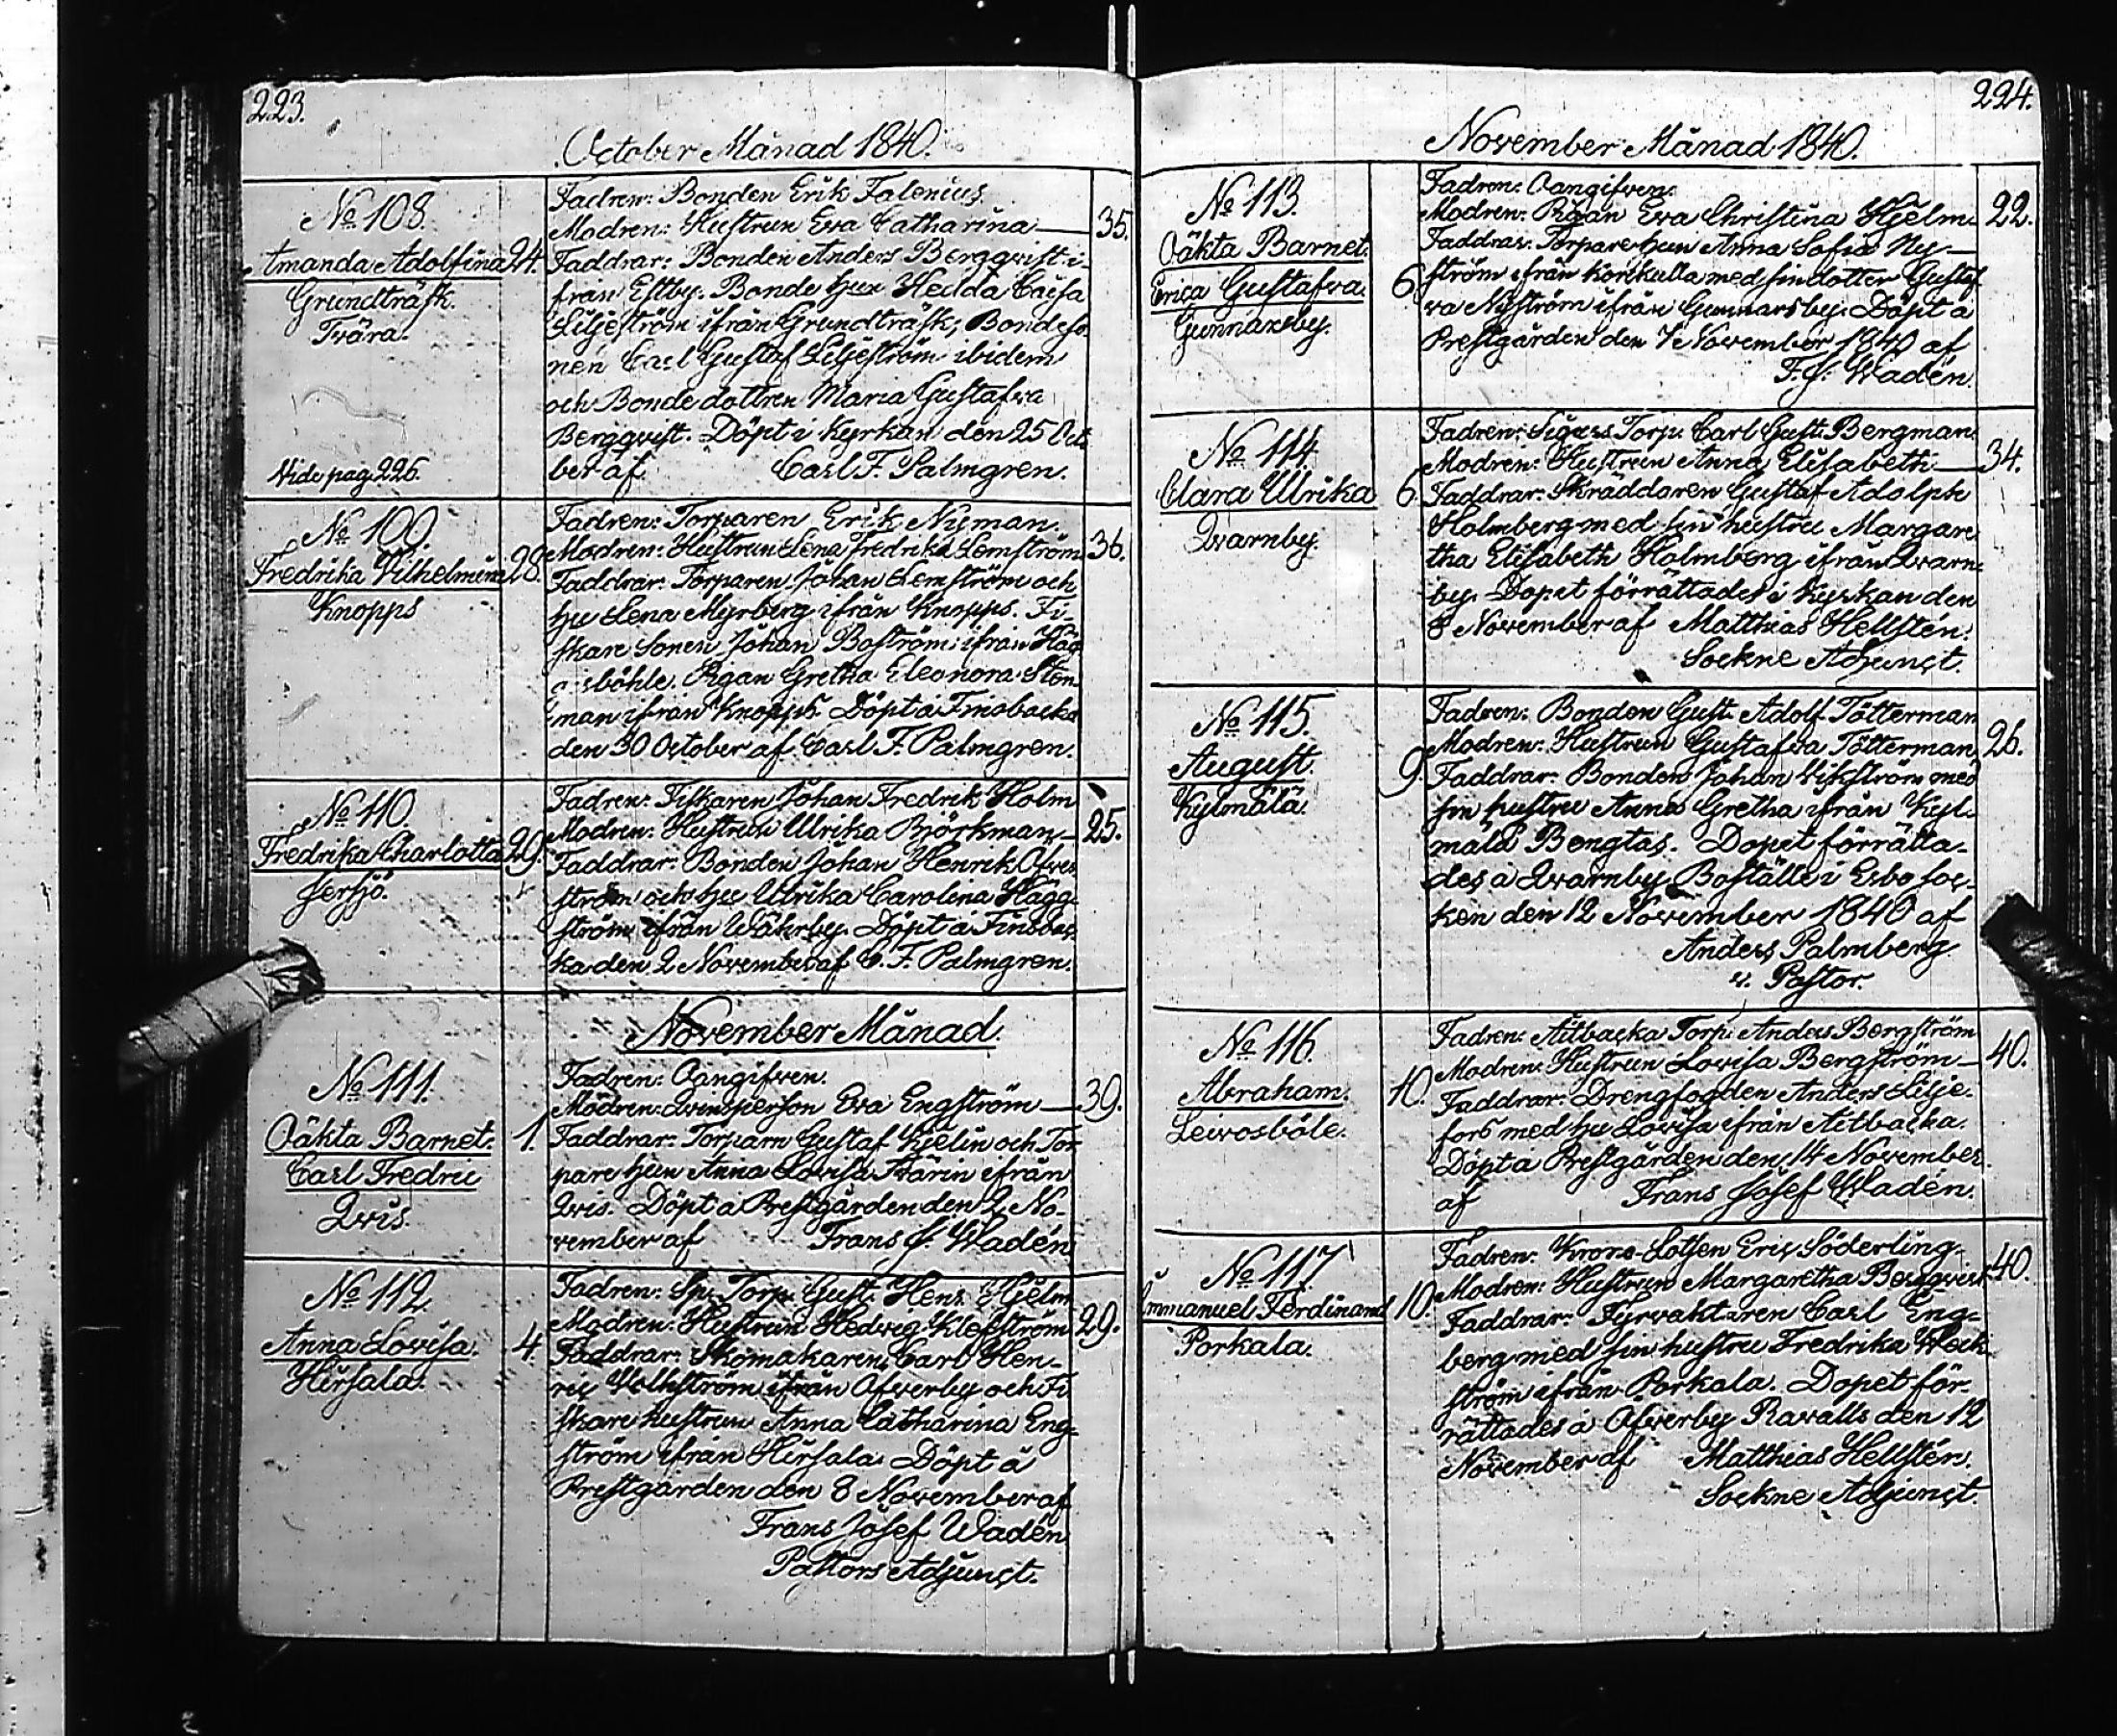 223.
October Månad 1840.
No 108.
Amanda Adolfina
Grundträsk.
Tvära.
Vide pag. 226.
24.
Fadren: Bonden Erik Falenius.
Modren: Hustrun Eva Catharina
Faddrar: Bonden Anders Bergqvist i-
från Estby. Bonde Hun Hedda Caisa
Liljeström ifrån Grundträsk; Bondeso-
nen Carl Gustaf Liljeström ibidem
och Bonde dottren Maria Gustafva
Bergqvist. Döpt i Kyrkan den 25 Octo
ber af Carl F. Palmgren.
35.
No 109.
Fredrika Vilhelmina
Knopps
28.
Fadren: Torparen Erik Nyman.
Modren: Hustrun Lena Fredrika Lemström
Faddrar: Torparen Johan Lemström och
Hu Lena Myrberg ifrån Knopps. Fi-
skare Sonen Johan Boström ifrån
böhle. Pigan Gretha Eleonora Sten
man ifrån Knopps. Döpt å Finsbacka
den 30 October af Carl F. Palmgren.
36.
No 110.
Fredrika Charlotta
Jersjö.
29.
Fadren: Fiskaren Johan Fredrik Holm
Modren: Hustrun Ulrika Björkman
Faddrar: Bonden Johan Henrik Öfver
ström och Hu Ulrika Carolina Hägg-
ström ifrån Wåhrby. Döpt å Finsbac
ka den 2 November af C. F. Palmgren.
25.
November Månad.
No 111.
Oäkta Barnet.
Carl Fredric
Qvis.
1.
Fadren: Oangifven.
Modren: Qvinsperson Eva Engström
Faddrar: Torparn Gustaf Kjelin och Tor
pare Hun Anna Lovisa Kårin ifrån
Qvis. Döpt å Prestgården den 2 No-
vember af Frans J. Wadén
39.
No 112.
Anna Lovisa.
Hirsala.
4.
Fadren: Sp. Torp. Gust. Henr. Hjelm
Modren: Hustrun Hedvig Klefström
Faddrar: Skomakaren Carl Hen-
ric Wallström ifrån Öfverby och Fi
skare hustrun Anna Catharina Eng-
ström ifrån Hirsala. Döpt å
Prestgården den 8 November af
Frans Josef Wadén
Pastors Adjunct.
29.
224.
November Månad 1840.
No 113.
Oäkta Barnet.
Erica Gustafva.
Gunnarsby.
6.
Fadren: Oangifven.
Modren: Pigan Eva Christina Hjelm.
Faddrar: Torpare Hun Anna Sofia Ny-
ström ifrån Korskulla med sin dotter Gustaf
va Nyström ifrån Gunnarsby. Döpt å
Prestgården den 7 November 1840 af
F. J. Wadén.
22.
No 114.
Clara Ulrika
Qvarnby.
6.
Fadren: Torp. Carl Gust. Bergman.
Modren: Hustrun Anna Elisabeth
Faddrar: Skräddaren Gustaf Adolph
Holmberg med sin hustru Margare
tha Elisabeth Holmberg ifrån Qvarn-
by. Dopet förrättades i Kyrkan den
8 November af Matthias Hellstén.
Sockne Adjunct.
34.
No 115.
August.
Kylmälä.
9.
Fadren: Bonden Gust. Adolf Tötterman
Modren: Hustrun Gustafva Tötterman
Faddrar: Bonden Johan Vikström med
sin hustru Anna Gretha ifrån Kyl-
mälä Bengtas. Dopet förrätta-
des å Qvarnby Boställe i Esbo soc-
ken den 12 November 1840 af
Anders Palmberg
v. Pastor.
26.
No 116.
Abraham.
Leivosböle.
10.
Fadren: Aitbacka Torp. Anders Bergström
Modren: Hustrun Lovisa Bergström
Faddrar: Drengfogden Anders Lilje-
fors med Hu Lovisa ifrån Aitbacka.
Döpt å Prestgården den 14 November
af Frans Josef Wadén.
40.
No 117
Emmanuel Ferdinand
Porkala.
10.
Fadren: Krono Lotsen Eric Söderling.
Modren: Hustrun Margaretha Bergqvist
Faddrar: Fyrvaktaren Carl Eng-
berg med sin hustru Fredrika Weck-
ström ifrån Porkala. Dopet för-
rättades å Öfverby Ravalls den 12
November af Matthias Hellstén.
Sockne Adjunct.
40.